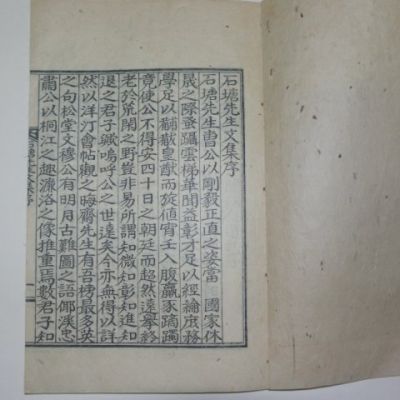 石塘先生文集序
石塘先生曺公以剛毅正直之姿當 國家休
晟之際蚤躡雲梯華聞益彰才足以經綸庶務
學足以黼黻皇猷而旋値宵壬入腹羸豕蹢躅
竟使公不得安四十日之朝廷而超然遠擧終
老於荒閑之野豈非易所謂知微知彰知進知
退之君子歟嗚呼公之世遠矣今亦無得以詳
然以洋汀會帖觀之晦齋先生有吾榜最多英
之句松堂文穆公有明月古難圖之語卿溪忠
肅公以桐江之趣濂洛之像推重焉數君子知
石塘先生文集序
一